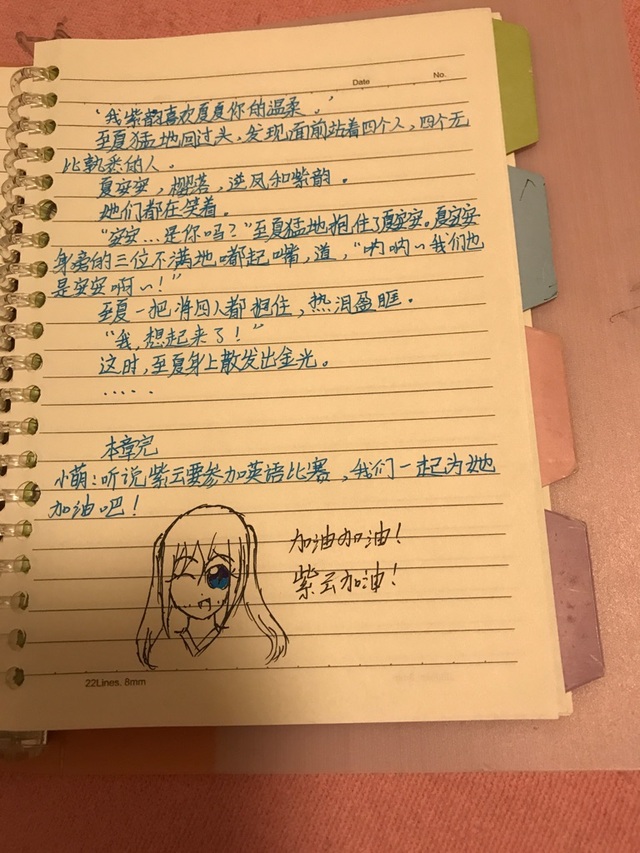 Date No.
“我紫韵喜欢夏夏你的温柔。”
至夏猛地回过头，发现面前站着四个人，四个无
比熟悉的人。
夏安安，樱落，逆风和紫韵。
她们都在笑着。
“安安…是你吗？”至夏猛地抱住了夏安安。夏安安
身旁的三位不满地嘟起嘴，道，“呐呐～我们也
是安安啊～！”
至夏一把将四人都抱住，热泪盈眶。
“我，想起来了！”
这时，至夏身上散发出金光。
·····
本章完
小萌：听说紫云要参加英语比赛，我们一起为她
加油吧！
加油加油！
紫云加油！
22Lines. 8mm